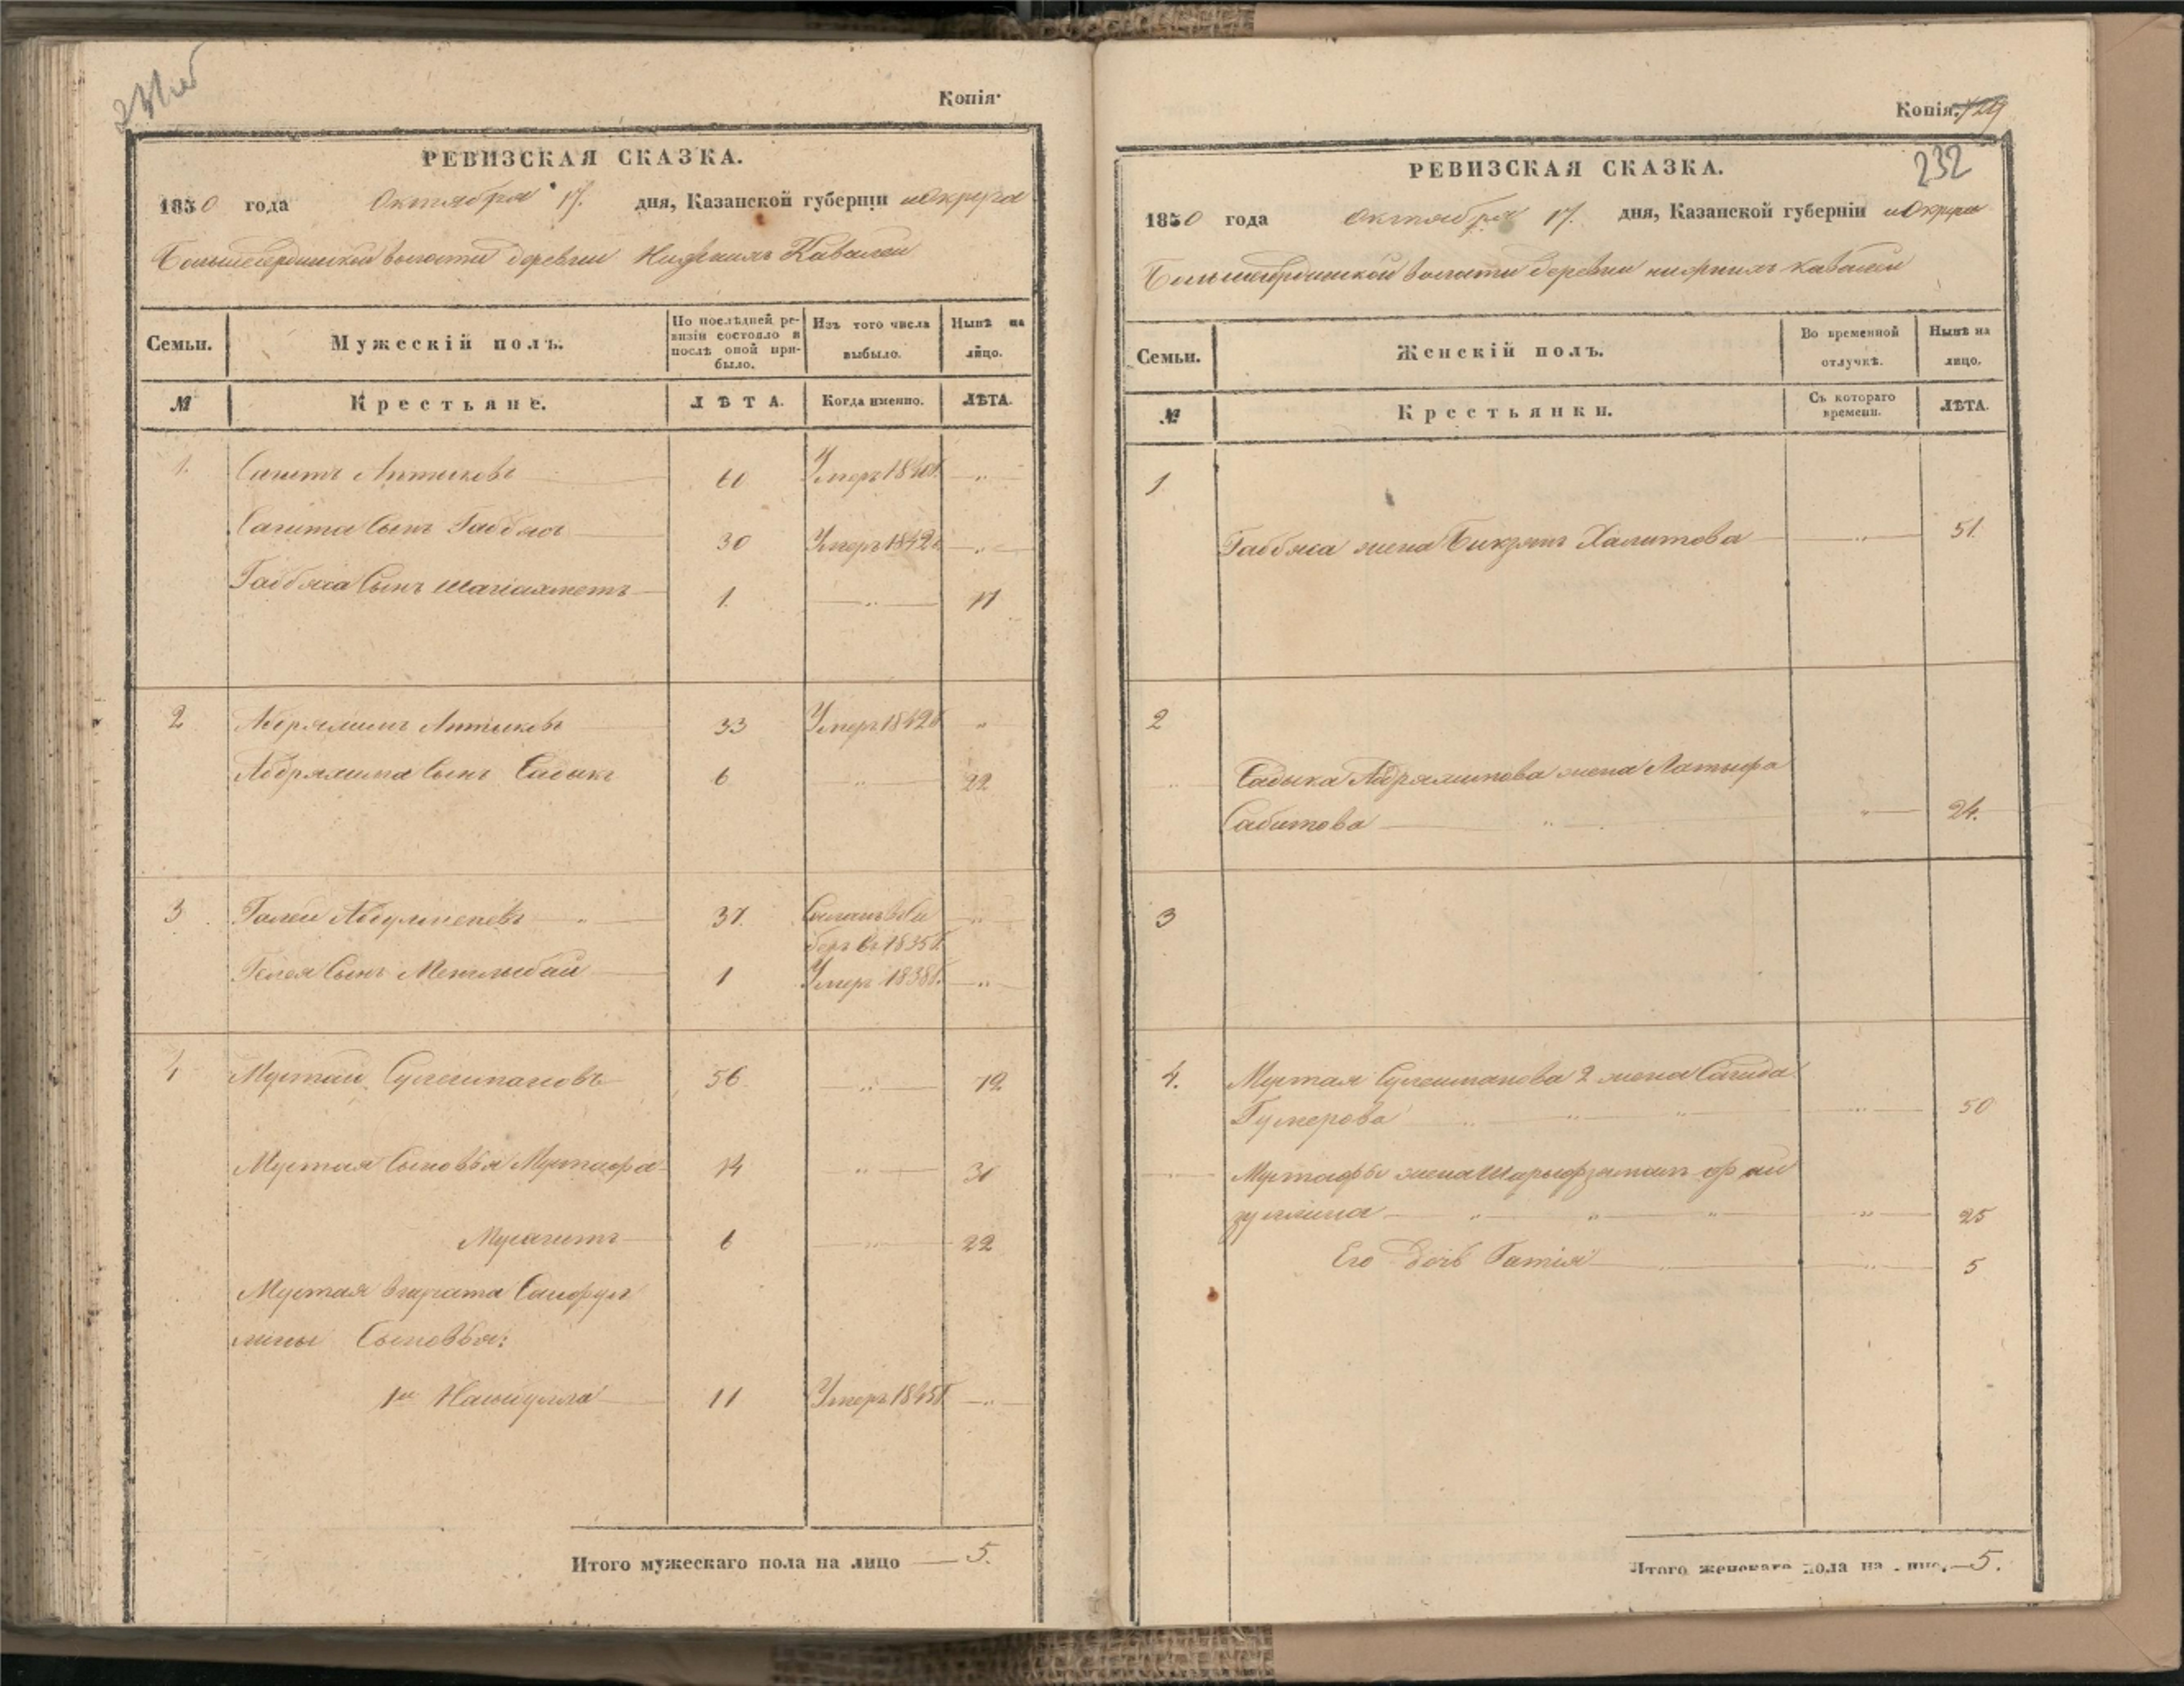 231об
Копія·
РЕВИЗСКАЯ СКАЗКА.
1850 года Октября 17. дня, Казанской губерніи и Округа
волости деревни Нижнихъ Кавалей
Семьи.
Мужескій полъ.
По послѣдней ре-
визіи состояло и
послѣ оной при-
было.
Изъ того числа
выбыло.
Нынѣ на
лицо.
№
Крестьяне.
ЛѢТА.
Когда именно.
ЛѢТА.
1. Сагитъ Аптиковъ 60 Умеръ 1840г. "
Сагита Сынъ Габбясъ 30 Умеръ 1842г. "
Габбяса Сынъ Шагіахметъ 1. " 17
2 Абдряшитъ Аптиковъ 33 Умеръ 1842г. "
Сынъ Садыкъ 6 " 22
3 Галей 37. Сосланъ въ Си "
бирь въ 1835г.
Галея Сынъ Менглыбай 1 Умеръ 1838г. "
4 Мустай Сулеймановъ 56 " 72
Мустая Сыновья Мустафа 14 " 30
Мусагитъ 6 " 22
Мустая брата Сайфул
лины Сыновья:
1й 11 Умеръ 1845г. "
Итого мужескаго пола на лицо — 5.
Копія. 729
232
РЕВИЗСКАЯ СКАЗКА.
1850 года октября 17. дня, Казанской губерніи и Округа
волости деревни нижнихъ Кавалей
Семьи.
Женскій полъ.
Во временной
отлучкѣ.
Нынѣ на
лицо.
№
Крестьянки.
Съ котораго
времени.
ЛѢТА.
1
Габбяса жена Халитова " 51.
2
Садыка жена Латыфа
Сабитова " " 24.
3
4. Мустая Сулейманова 2 жена Сагида
Гумерова " " " " 50
Мустафы жена Фай
зуллина " " " " 25
Его Дочь Гатія " " 5
Итого женскаго пола на лицо. — 5.